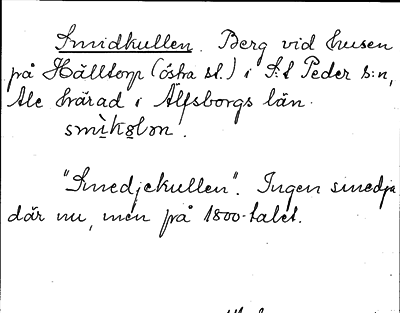 Smidkullen. Berg vid husen
på Hälltorp (östra st.) i S:t Peder s:n,
Ale härad i Älfsborgs län.
smìkɵlən.
"Smedjekullen". Ingen smedja
där nu, men på 1800-talet.